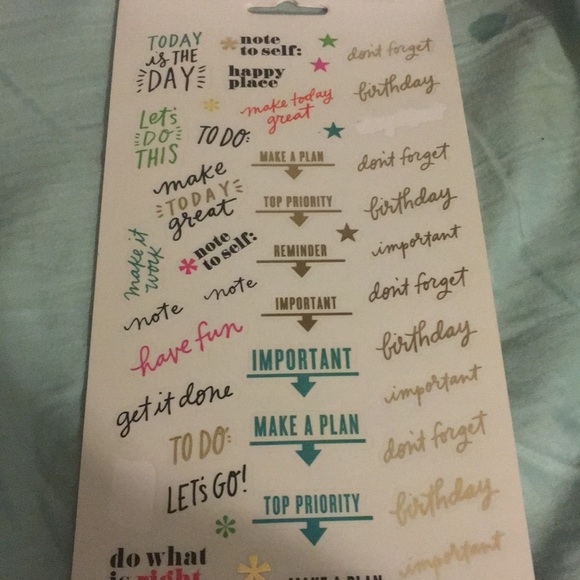 TODAY
is THE
DAY
note
to self:
don't forget
happy
place
birthday
make today
great
Let's
DO
THIS
TO DO:
MAKE A PLAN
don't forget
make
TODAY
great
TOP PRIORITY
birthday
make it
work
note
to self:
REMINDER
important
note
note
IMPORTANT
don't forget
have fun
IMPORTANT
birthday
get it done
important
MAKE A PLAN
TO DO:
don't forget
LET'S GO!
TOP PRIORITY
birthday
do what
is right
MAKE A PLAN
important